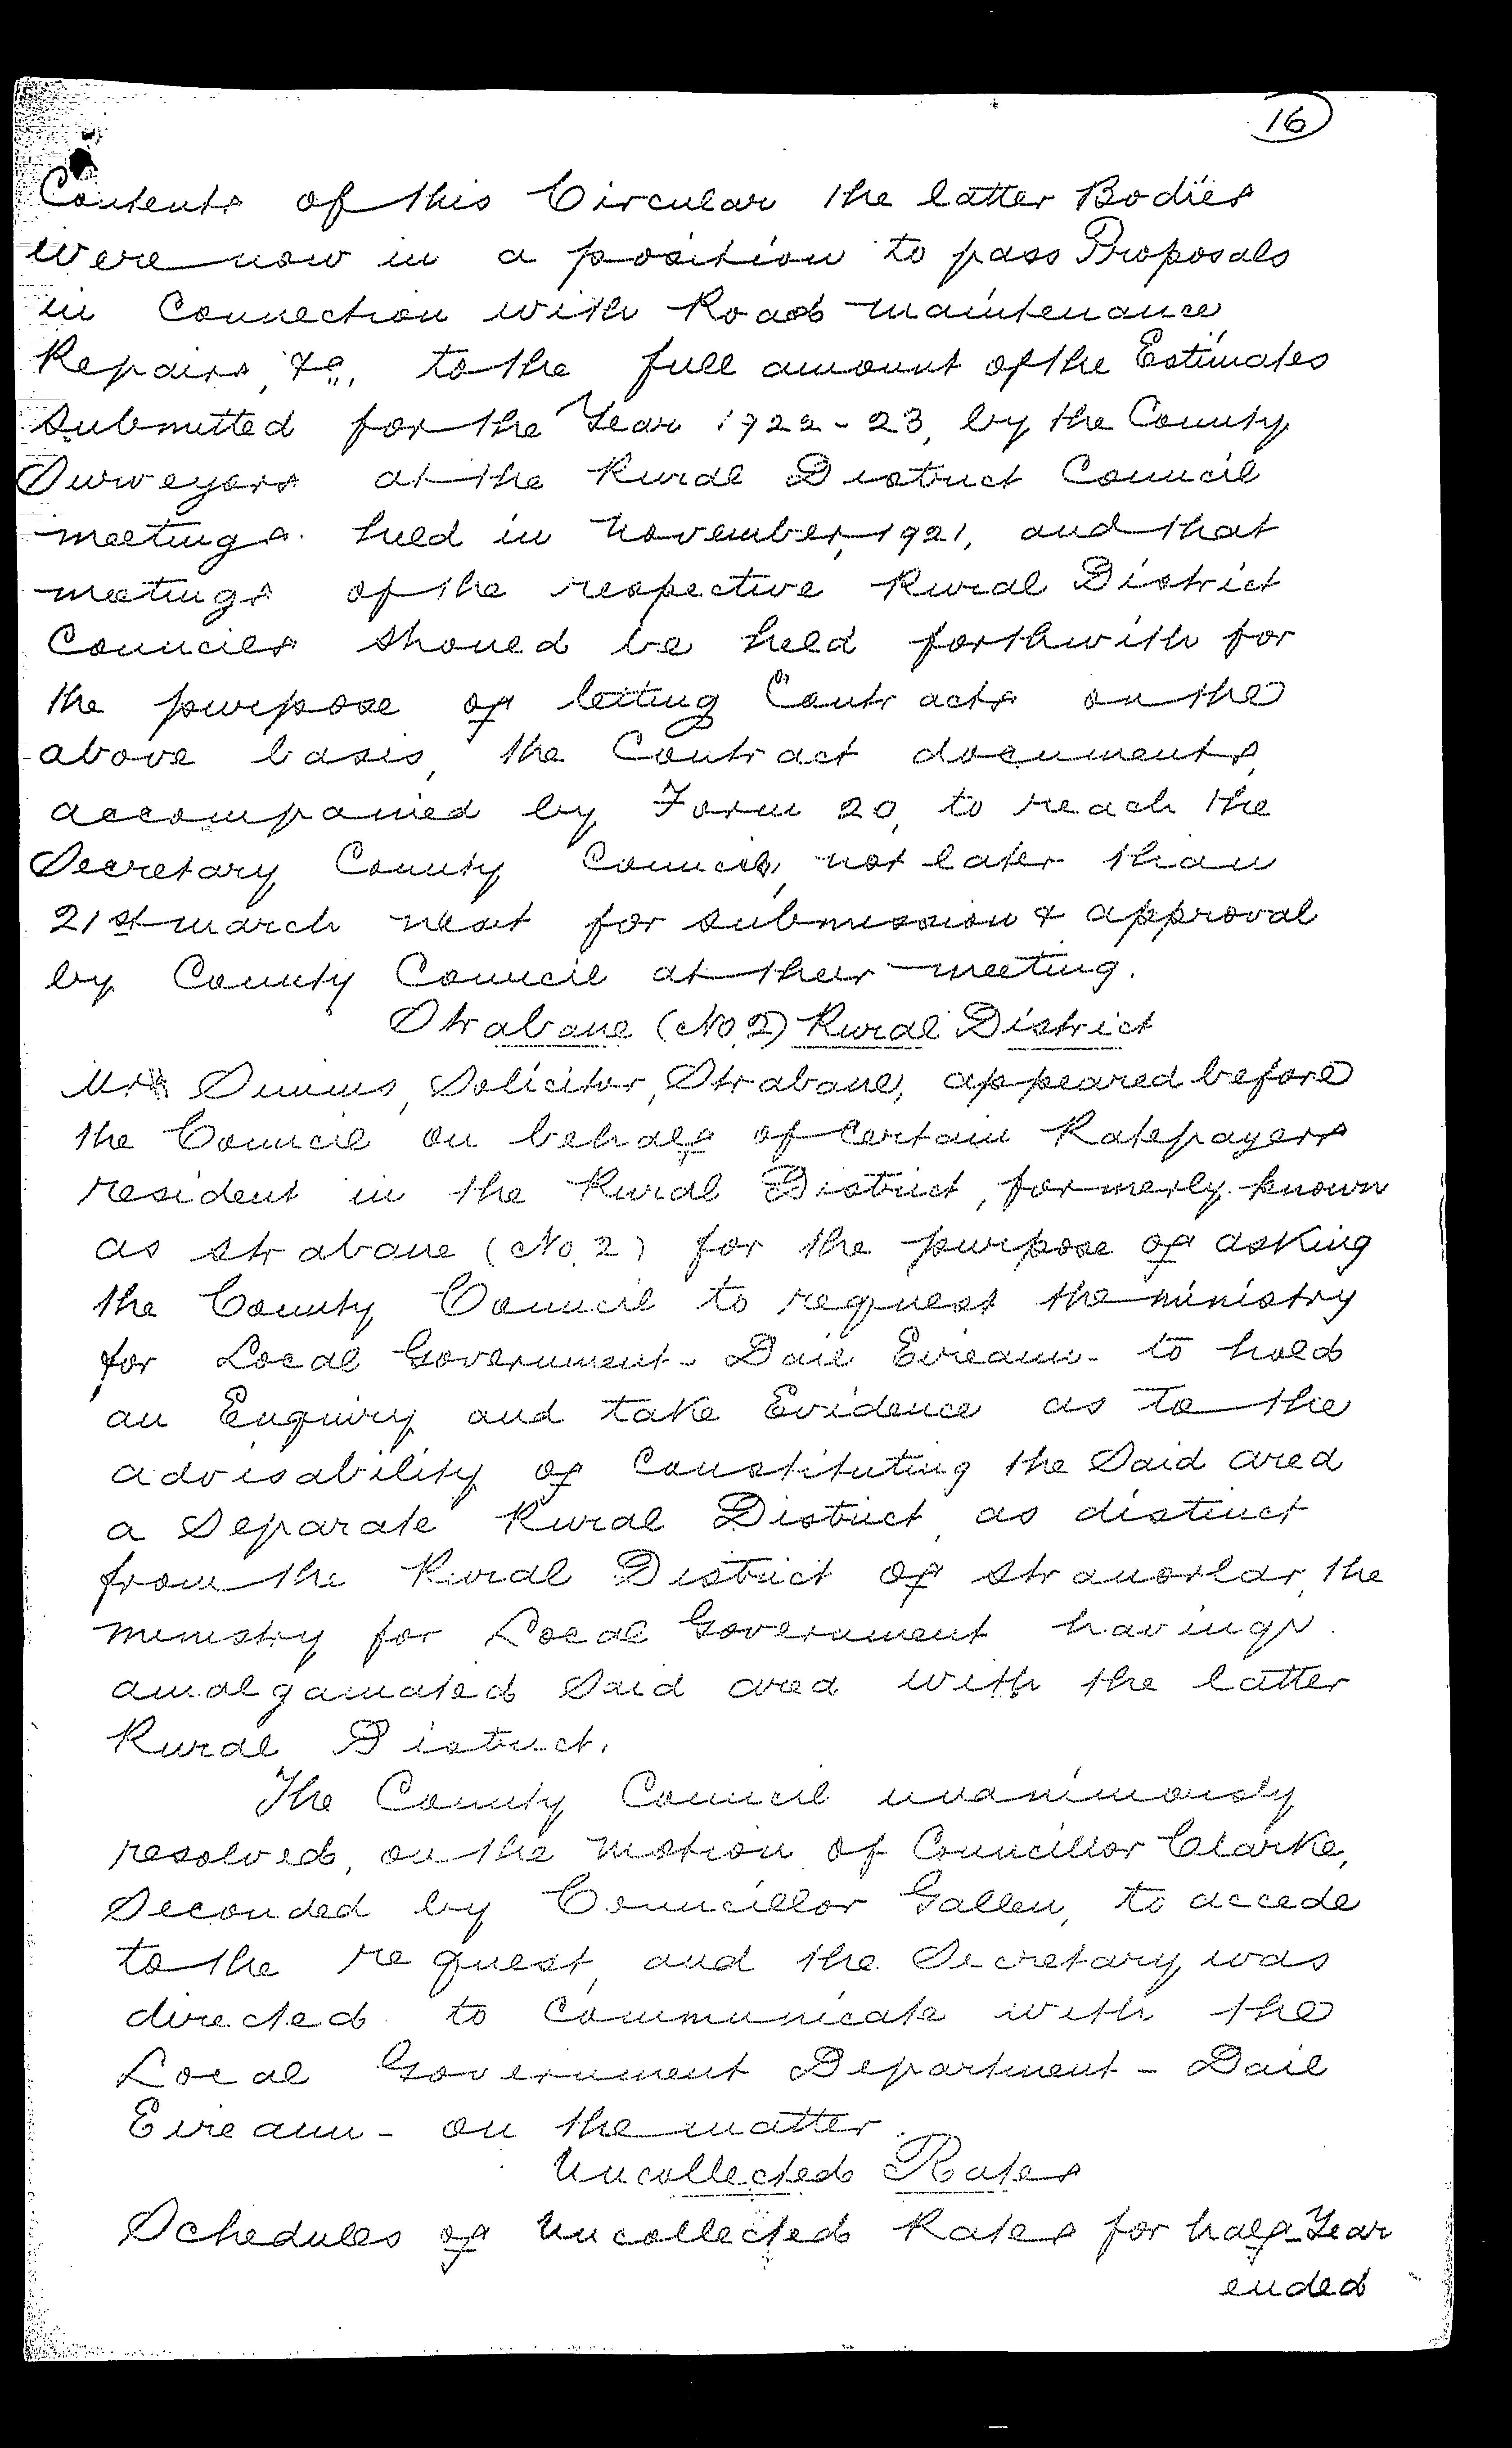 16
Contents of this Circular the latter Bodies
were now in a position to pass Proposals
in Connection with Road maintenance
Repairs, &c., to the full amount of the Estimates
submitted for the Year 1922-23, by the County
Surveyors at the Rural District Council
meetings held in November, 1921, and that
meetings of the respective Rural District
Councils should be held forthwith for
the purpose of letting Contracts on the
above basis, the Contract documents,
accompanied by Form 20, to reach the
Secretary County Council, not later than
21st March next for submission & approval
by County Council at their meeting.
Strabane (No. 2) Rural District
Mr Simms, Solicitor, Strabane, appeared before
the Council on behalf of certain Ratepayers
resident in the Rural District, formerly known
as Strabane (No. 2) for the purpose of asking
the County Council to request the ministry
for Local Government - Dail Eireann - to hold
an Enquiry and take Evidence as to the
advisability of Constituting the Said area
a Separate Rural District, as distinct
from the Rural District of Stranorlar, the
ministry for Local Government having
amalgamated Said area with the latter
Rural District.
The County Council unanimously
resolved, on the motion of Councillor Clarke,
Seconded by Councillor Gallen, to accede
to the request, and the Secretary was
directed to Communicate with the
Local Government Department - Dail
Eireann - on the matter.
Uncollected Rates
Schedules of Uncollected Rates for half-Year
ended